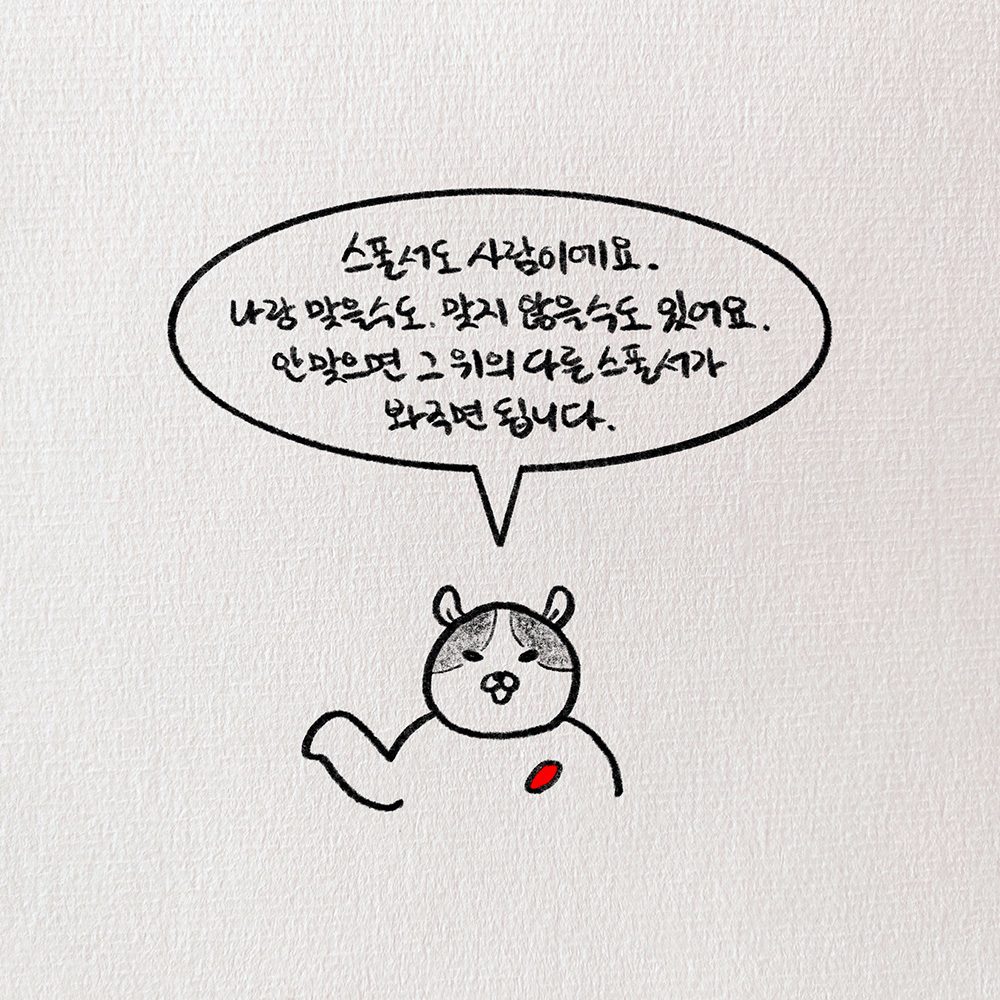 스폰서도 사람이에요.
나랑 맞을수도. 맞지 않을수도 있어요.
안맞으면 그 위의 다른 스폰서가
봐주면 됩니다.